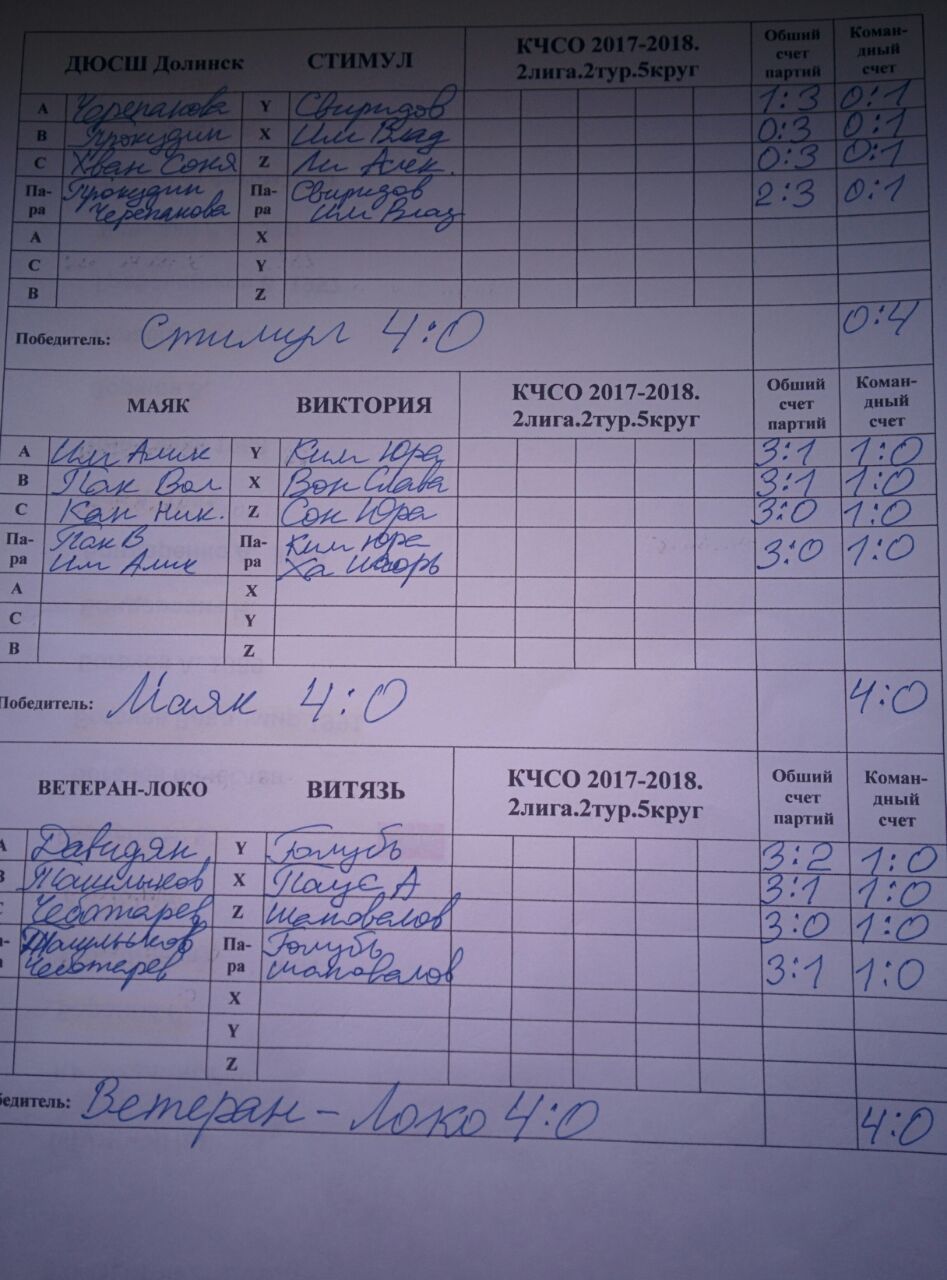 ДЮСШ Долинск СТИМУЛ КЧСО 2017-2018. 2лига.2тур.5круг Обший счет партий Коман-дный счет
A Черепанова Y Свиридов 1:3 0:1
B Прокудин X Им Влад 0:3 0:1
C Хван Соня Z Ли Алек. 0:3 0:1
Па-ра Прокудин Черепанова Па-ра Свиридов Им Влад 2:3 0:1
A X
C Y
B Z
Победитель: Стимул 4:0 0:4
МАЯК ВИКТОРИЯ КЧСО 2017-2018. 2лига.2тур.5круг Обший счет партий Коман-дный счет
A Им Алик Y Ким Юра 3:1 1:0
B Пак Вол X Вон Слава 3:1 1:0
C Кан Ник. Z Сон Юра 3:0 1:0
Па-ра Пак В Им Алик Па-ра Ким Юра Ха Игорь 3:0 1:0
A X
C Y
B Z
Победитель: Маяк 4:0 4:0
ВЕТЕРАН-ЛОКО ВИТЯЗЬ КЧСО 2017-2018. 2лига.2тур.5круг Обший счет партий Коман-дный счет
A Давидян Y Голубь 3:2 1:0
B Ташлыков X Паус А 3:1 1:0
C Чеботарев Z Шаповалов 3:0 1:0
Ташлыков Чеботарев Па-ра Голубь Шаповалов 3:1 1:0
X
Y
Z
бедитель: Ветеран - Локо 4:0 4:0